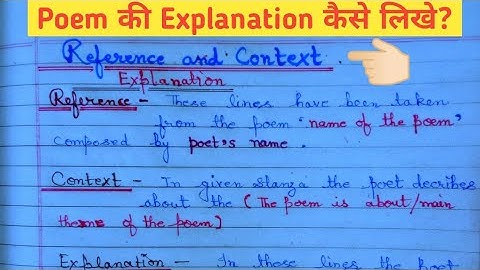 Poem की Explanation कैसे लिखे?
Reference and Context.
Explanation
Reference - These lines have been taken
from the poem 'name of the poem'
composed by poet's name.
Context - In given stanza the poet decribes
about the (The poem is about/main
theme of the poem)
Explanation - In these lines the poet